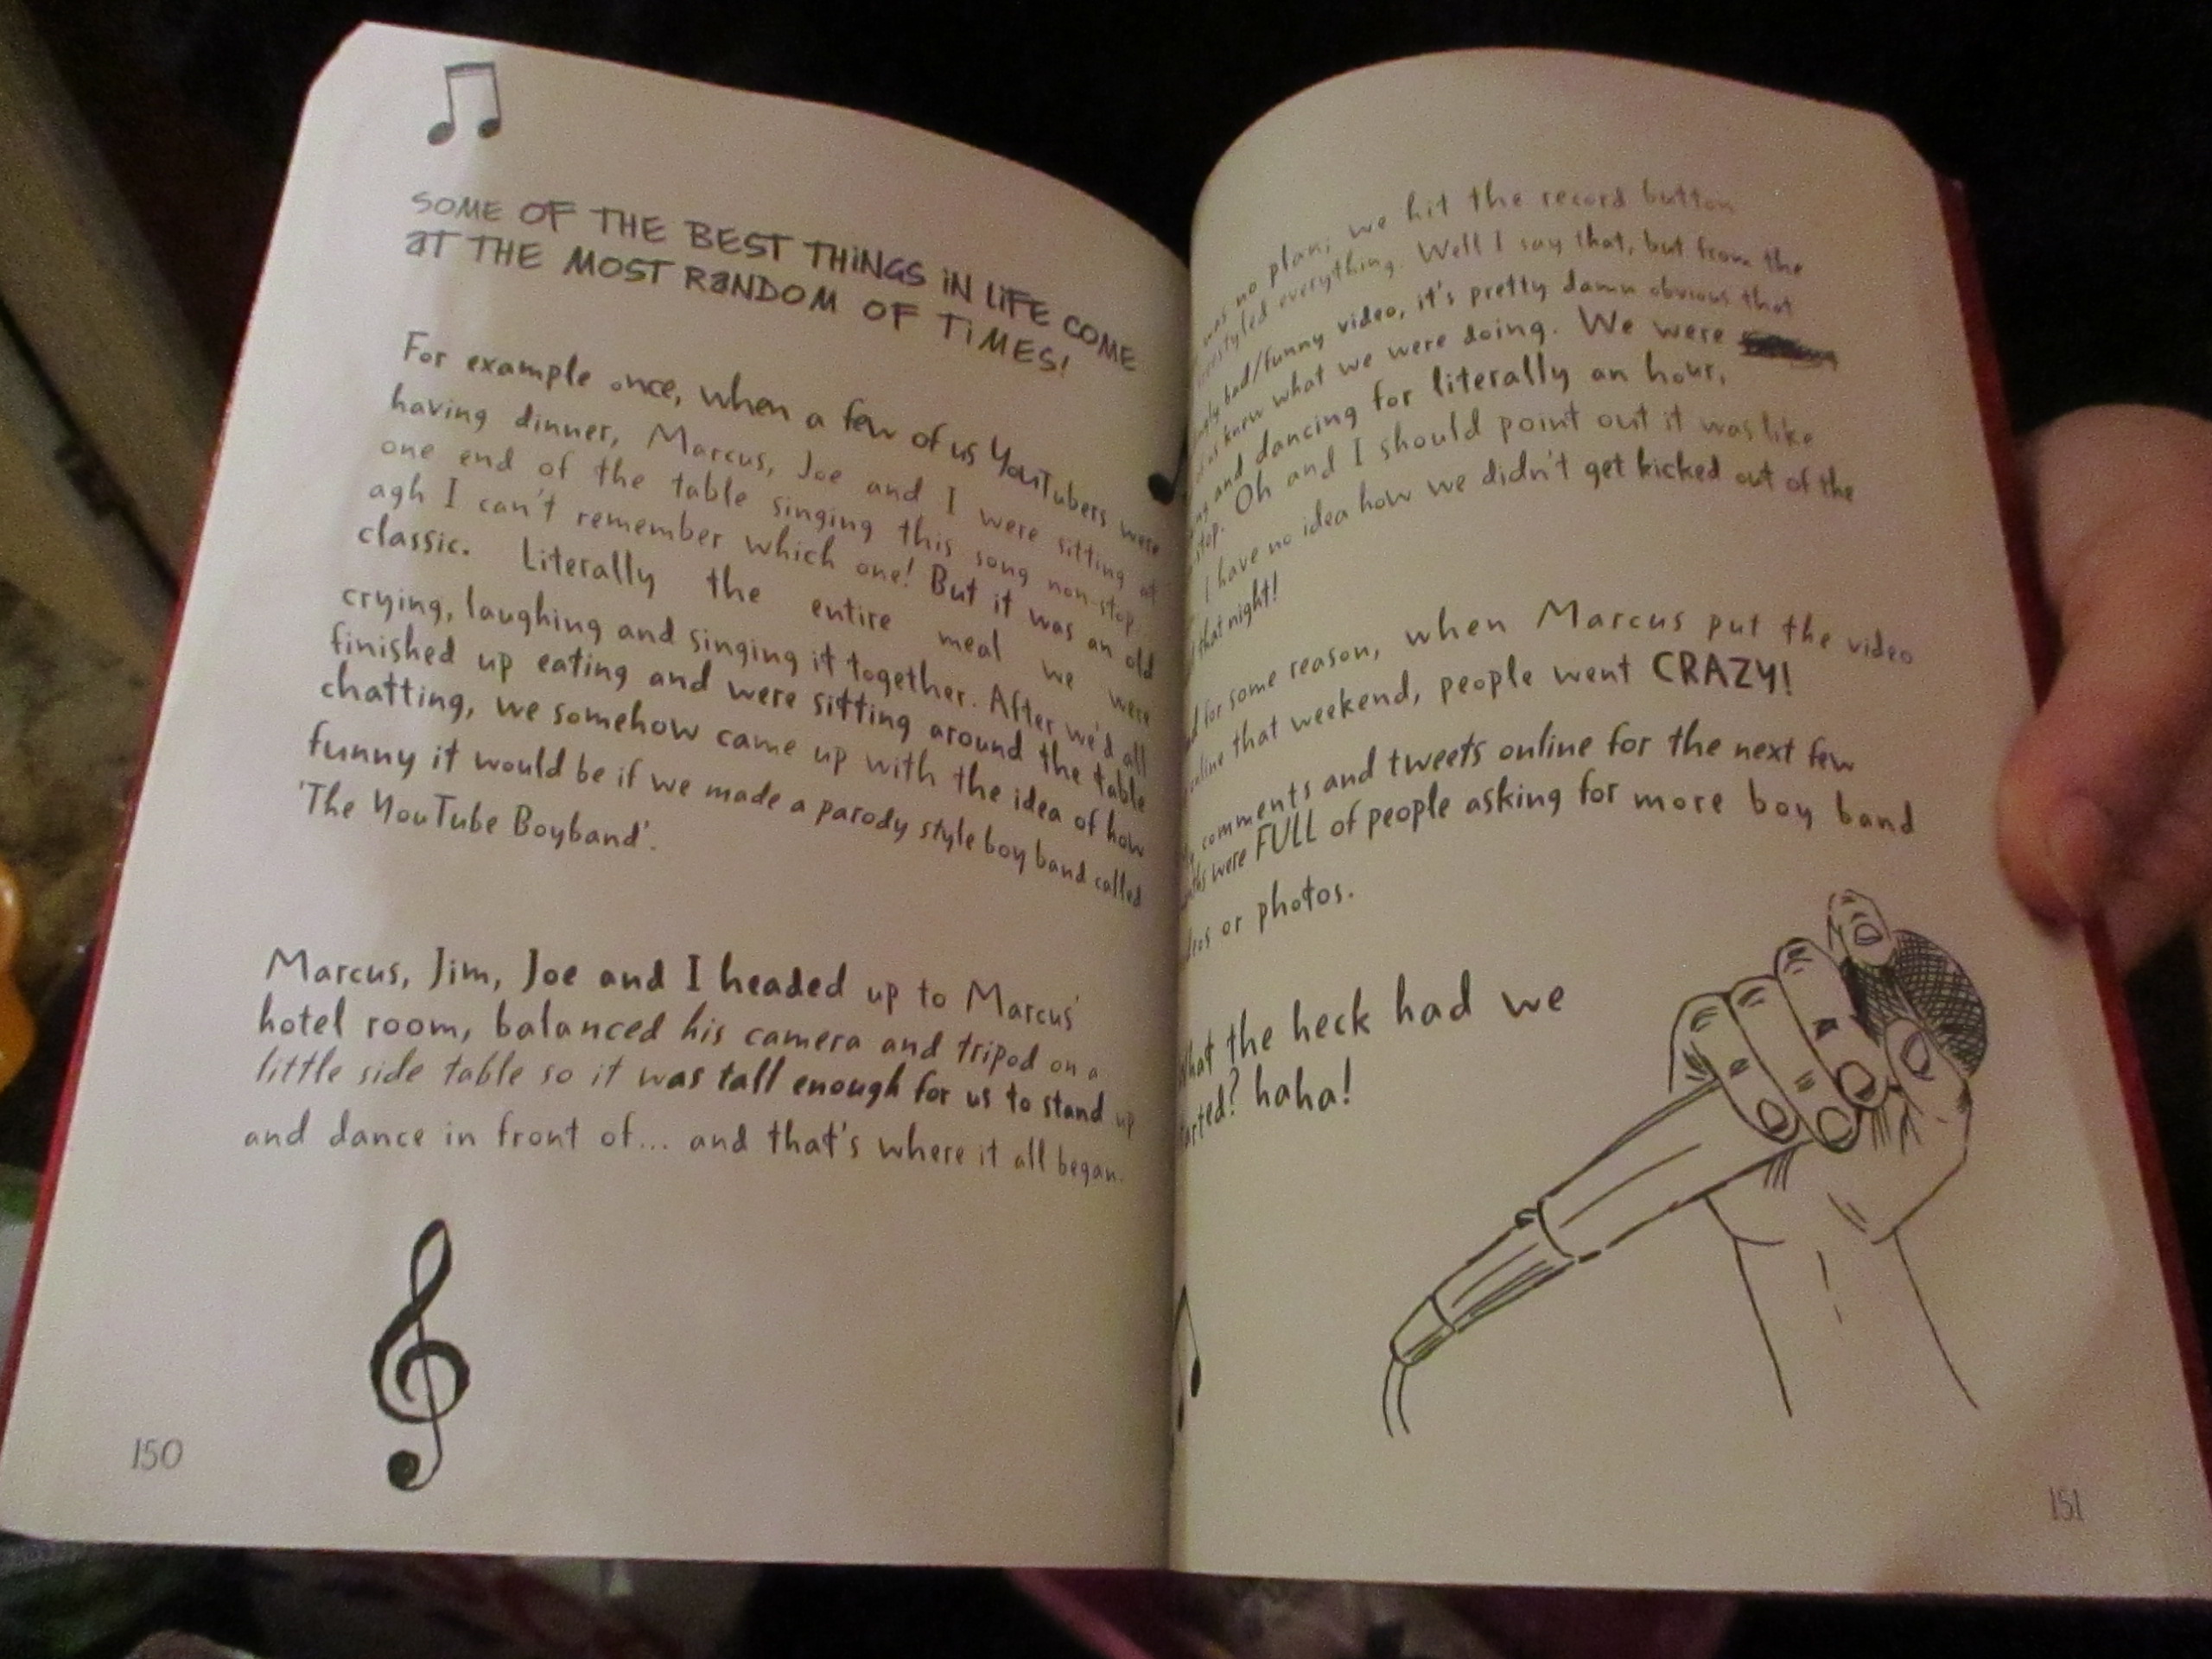 SOME OF THE BEST THINGS IN LIFE COME
AT THE MOST RANDOM OF TIMES!
For example once, when a few of us YouTubers were
having dinner, Marcus, Joe and I were sitting at
one end of the table singing this song non-stop
agh I can't remember which one! But it was an old
classic. Literally the entire meal we were
crying, laughing and singing it together. After we'd all
finished up eating and were sitting around the table
chatting, we somehow came up with the idea of how
funny it would be if we made a parody style boy band called
'The YouTube Boyband'.
Marcus, Jim, Joe and I headed up to Marcus'
hotel room, balanced his camera and tripod on a
little side table so it was tall enough for us to stand up
and dance in front of... and that's where it all began.
150
was no plan; we hit the record button
everything. Well I say that, but from the
bad/funny video, it's pretty damn obvious that
knew what we were doing. We were
and dancing for literally an hour,
stop. Oh and I should point out it was like
I have no idea how we didn't get kicked out of the
that night!
for some reason, when Marcus put the video
online that weekend, people went CRAZY!
comments and tweets online for the next few
were FULL of people asking for more boy band
or photos.
What the heck had we
haha!
151